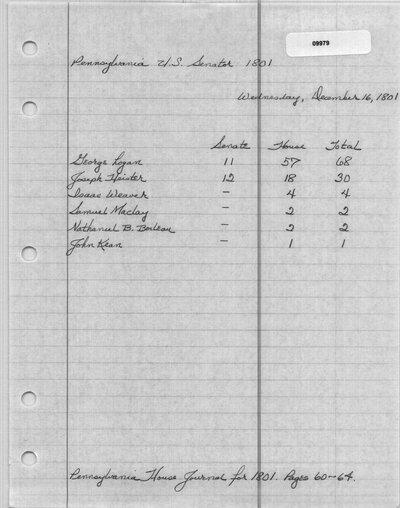 09979
Pennsylvania U.S. Senator 1801
Wednesday, December 16, 1801
Senate House Total
George Logan 11 57 68
Joseph Heister 12 18 30
Isaac Weaver – 4 4
Samuel Maclay – 2 2
Nathaniel B. Boileau – 2 2
John Kean – 1 1
Pennsylvania House Journal for 1801. Pages 60-64.